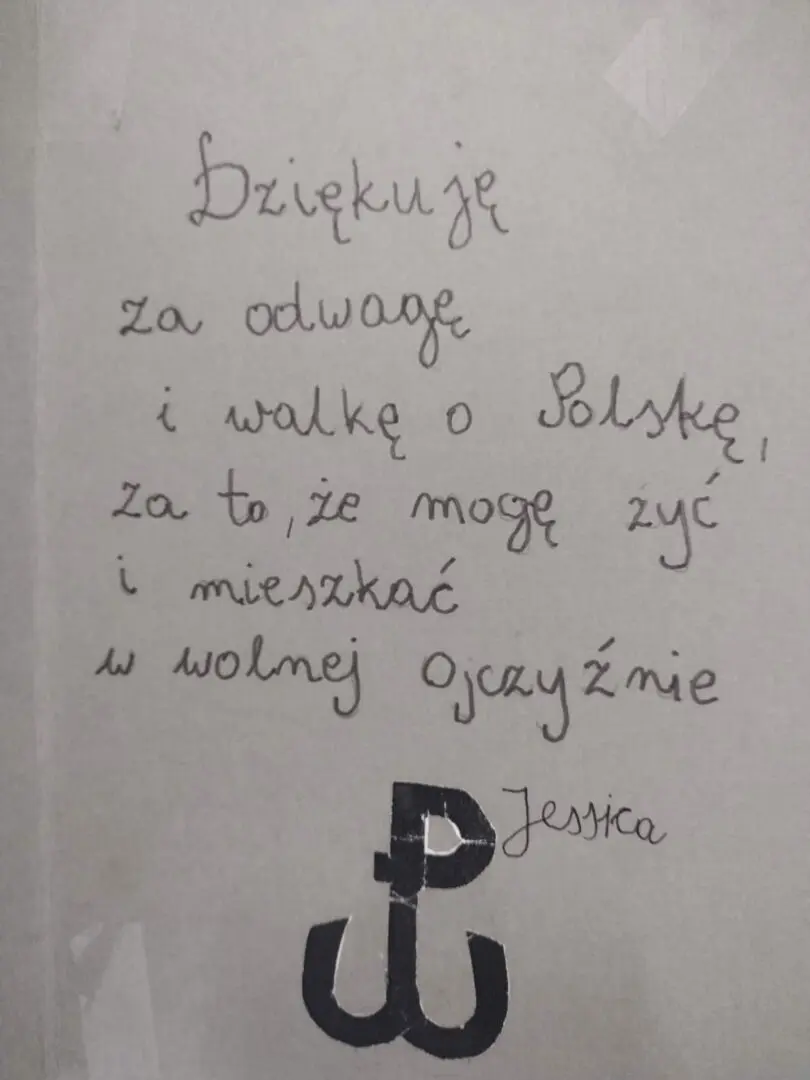 Dziękuję
za odwagę
i walkę o Polskę,
za to, że mogę żyć
i mieszkać
w wolnej Ojczyźnie
Jessica